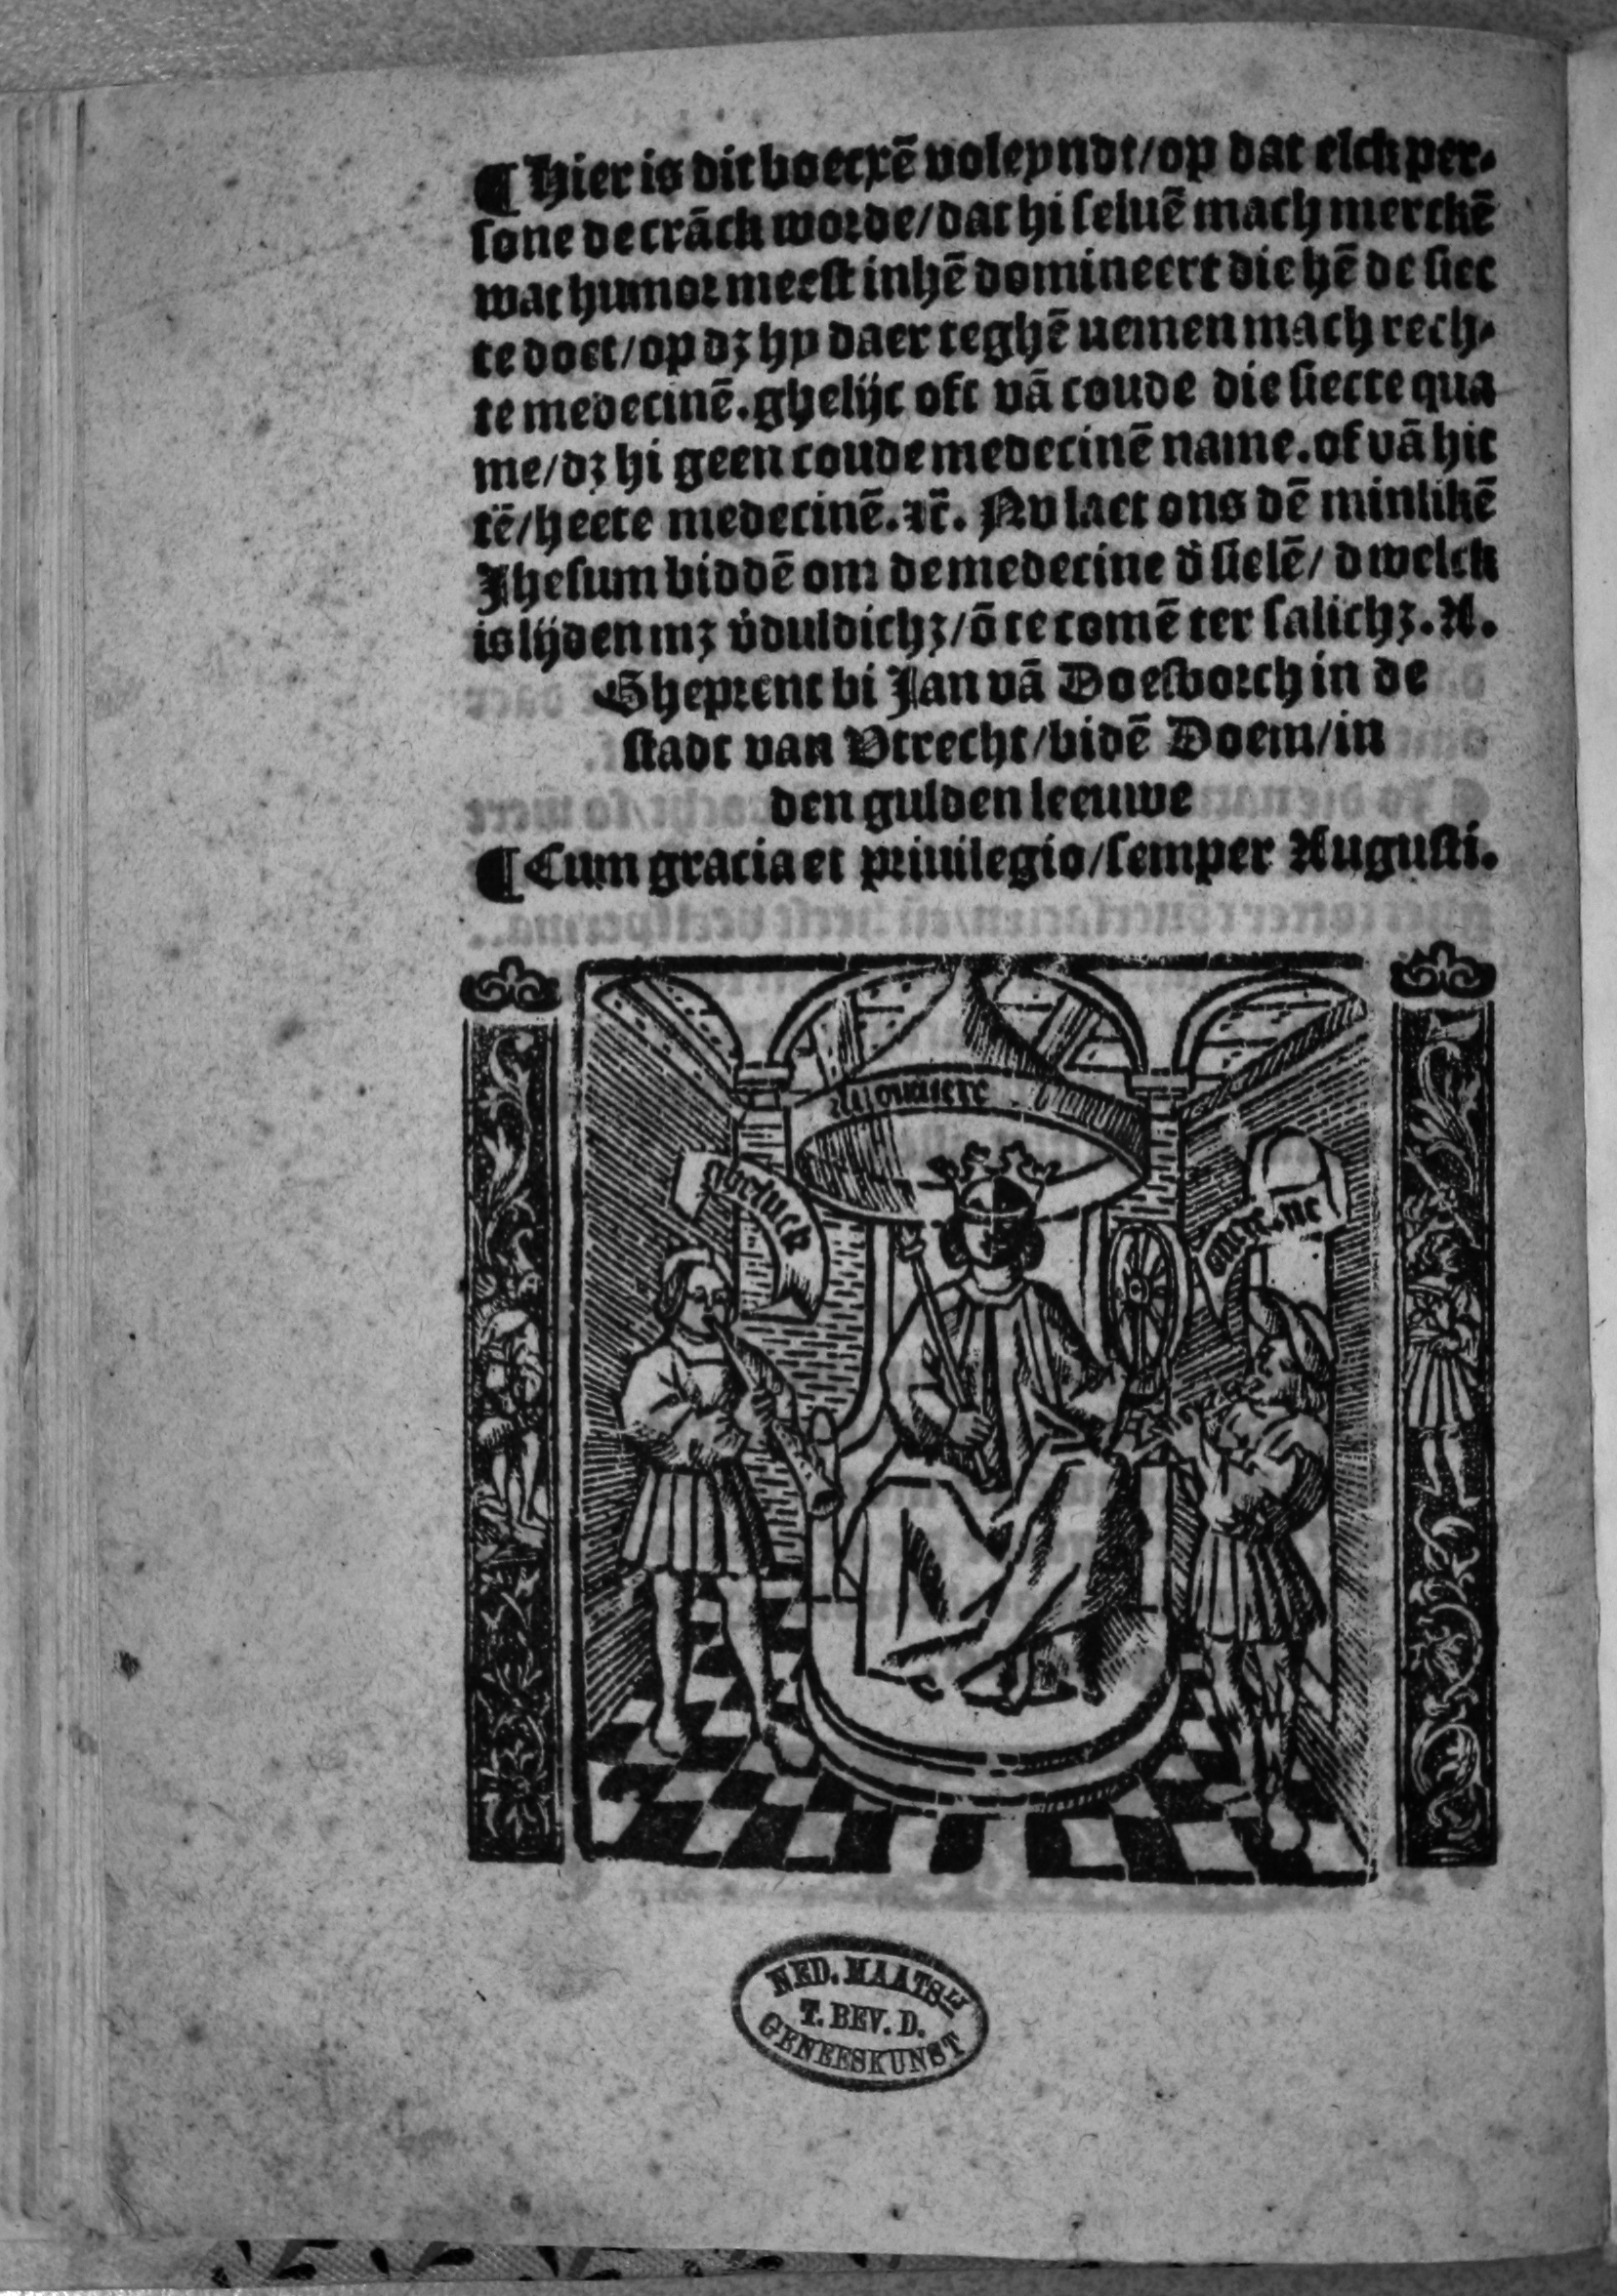 ¶ Hier is dit boecxē voleyndt/op dat elck per-
sone de crāck worde/dat hi seluē mach merckē
wat humor meest in hē domineert die hē de siec
te doet/op dꝫ hy daer teghē nemen mach rech-
te medecinē.ghelijc oft vā coude die siecte qua
me/dꝫ hi geen coude medecinē name.of vā hit
tē/heete medecinē.⁊c̄. Nv laet ons dē minlikē
Jhesum biddē om de medecine d̓ sielē/ dwelck
is lijden mꝫ v̓duldichꝫ/ō te comē ter salichꝫ.A.
Gheprent bi Jan vā Doesborch in de
stadt van Vtrecht/bidē Doem/in
den gulden leeuwe
¶ Cum gracia et priuilegio/semper Augusti.
Auontuere
NED. MAATSIJ
T. BEV. D.
GENEESKUNST